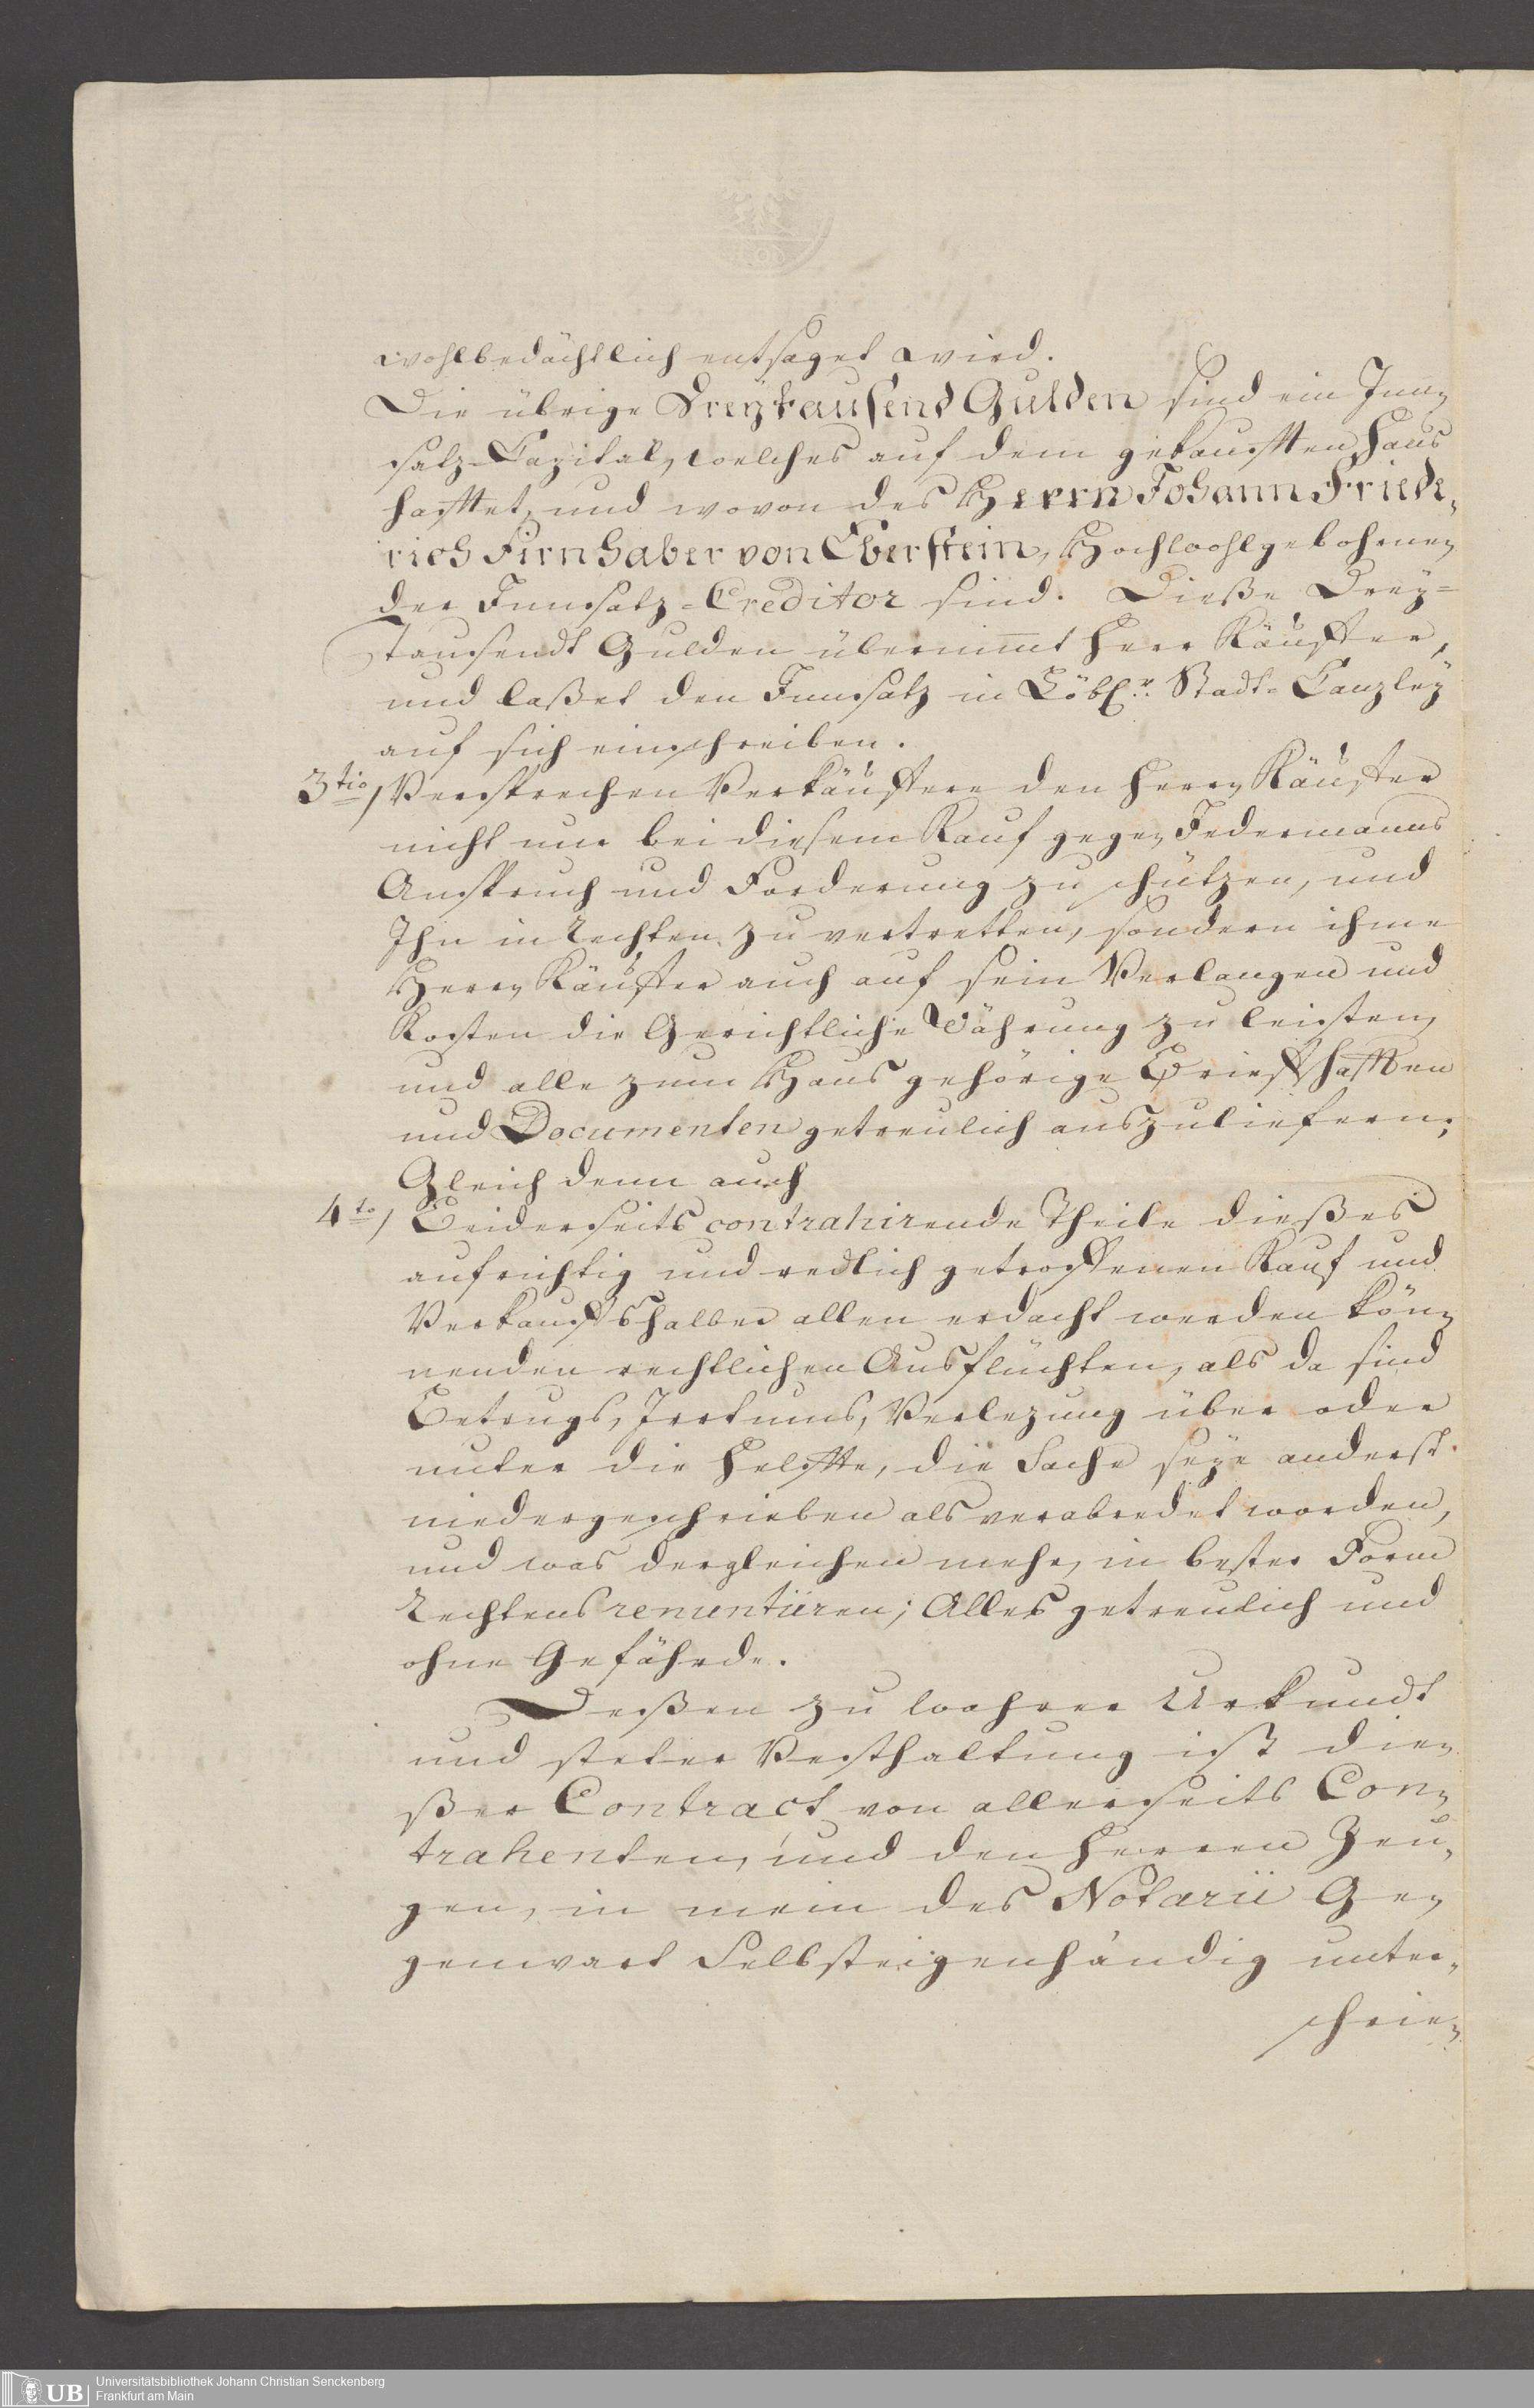 wohlbedächtlich entsaget wird.
Die übrige Dreytausend Gulden sind ein Inn¬
satz-Capital, welches auf dem gekaufften Haus
hafftet, und wovon des Herrn Johann Friede¬
rich Firnhaber von Eberstein, Hochwohlgebohrnen
der Innsatz-Creditor sind. Dieße Drey=
tausendt Gulden übernimmt Herr Käuffer,
und laßet den Innsatz in Löbl.r Stadt-Canzley
auf sich einschreiben.
3tio/ Versprechen Verkäuffere den Herrn Käuffer
nicht nur bei diesem Kauf gegen Jedermanns
Anspruch und Forderung zu schützen, und
Ihn in Rechten zu vertretten, sondern ihme
Herrn Käuffer auch auf sein Verlangen und
Kosten die Gerichtliche Währung zu leisten,
und alle zum Haus gehörige Briefschafften
und Documenten getreulich auszuliefern;
Gleich denn auch
4to/ Beiderseits contrahirende Theile dießes
aufrichtig und redlich getroffenen Kauf und
Verkauffshalber allen erdacht werden kön¬
nenden rechtlichen Ausflüchten, als da sind
Betrugs, Irrtums, Verlezung über oder
unter die Helffte, die Sache seye anderst
niedergeschrieben als verabredet worden,
und was dergleichen mehr, in bester Form
Rechtens renuntiiren; Alles getreulich und
ohne Gefährde.
Deßen zu wahrer Urkundt
und steter Vesthaltung ist die¬
ßer Contract von allerseits Con¬
trahenten, und den Herren Zeu¬
gen, in mein des Notarii Ge¬
genwart Selbsteigenhändig unter¬
schrie¬
UB Universitätsbibliothek Johann Christian Senckenberg
Frankfurt am Main